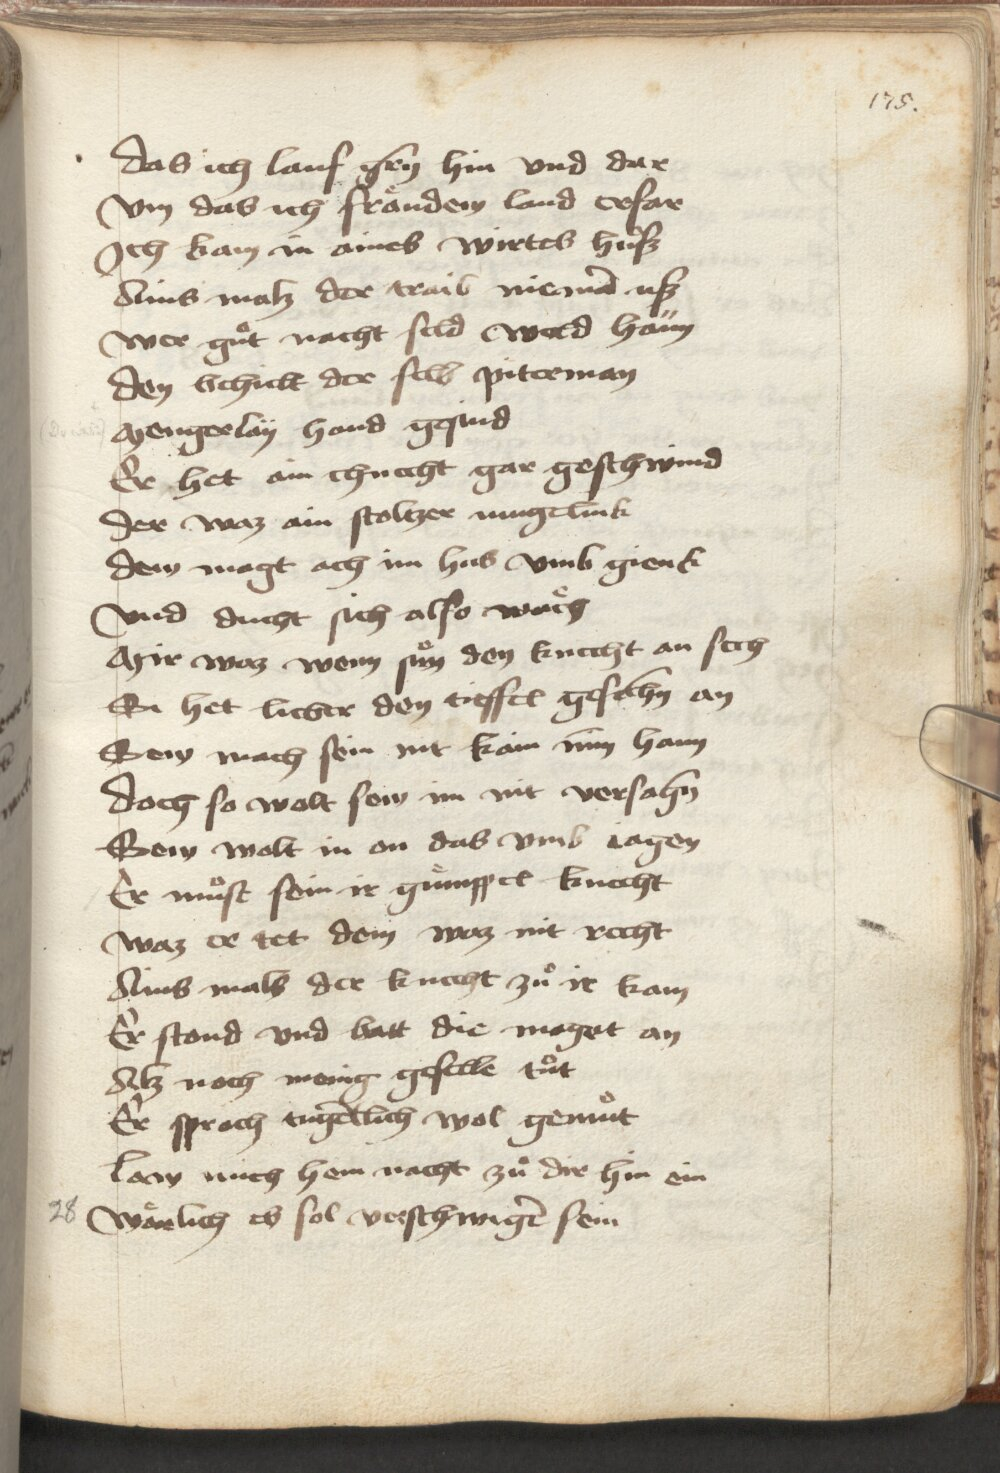 175.
das ich lauf gern hin vnd dar
vm das ich frăndem land erfar
Ich kam in aines wirtes hůsz
Ains malz der traib niemād usz
wer gůt nacht seld werd haůn
den behielt der selb piterman
Mengerlaÿ hand gesind
Er het ain chnecht gar geschwind
Der waz ain stoltzer iungelink
dem magt ach im hus vmb gienk
Vnd ducht sich also wäch
Mir waz wenn sů den knecht an sech
Si het lieber den tieffel gesechn an
Sew mach sein nit kain nūn hann
doch so wolt sew im nit versahn
Sew wolt in an das vmb iagen
Er můst sein ir gůmppel knecht
waz er tet dem waz nit recht
Ains mals der knecht zů ir kam
Er stond vnd batt die maget an
Alz noch menig geselle tůt
Er sprach tugētlich wol gemůt
Law mich hein nacht zů dir hin ein
28 wärlich es sol verschwigē sein